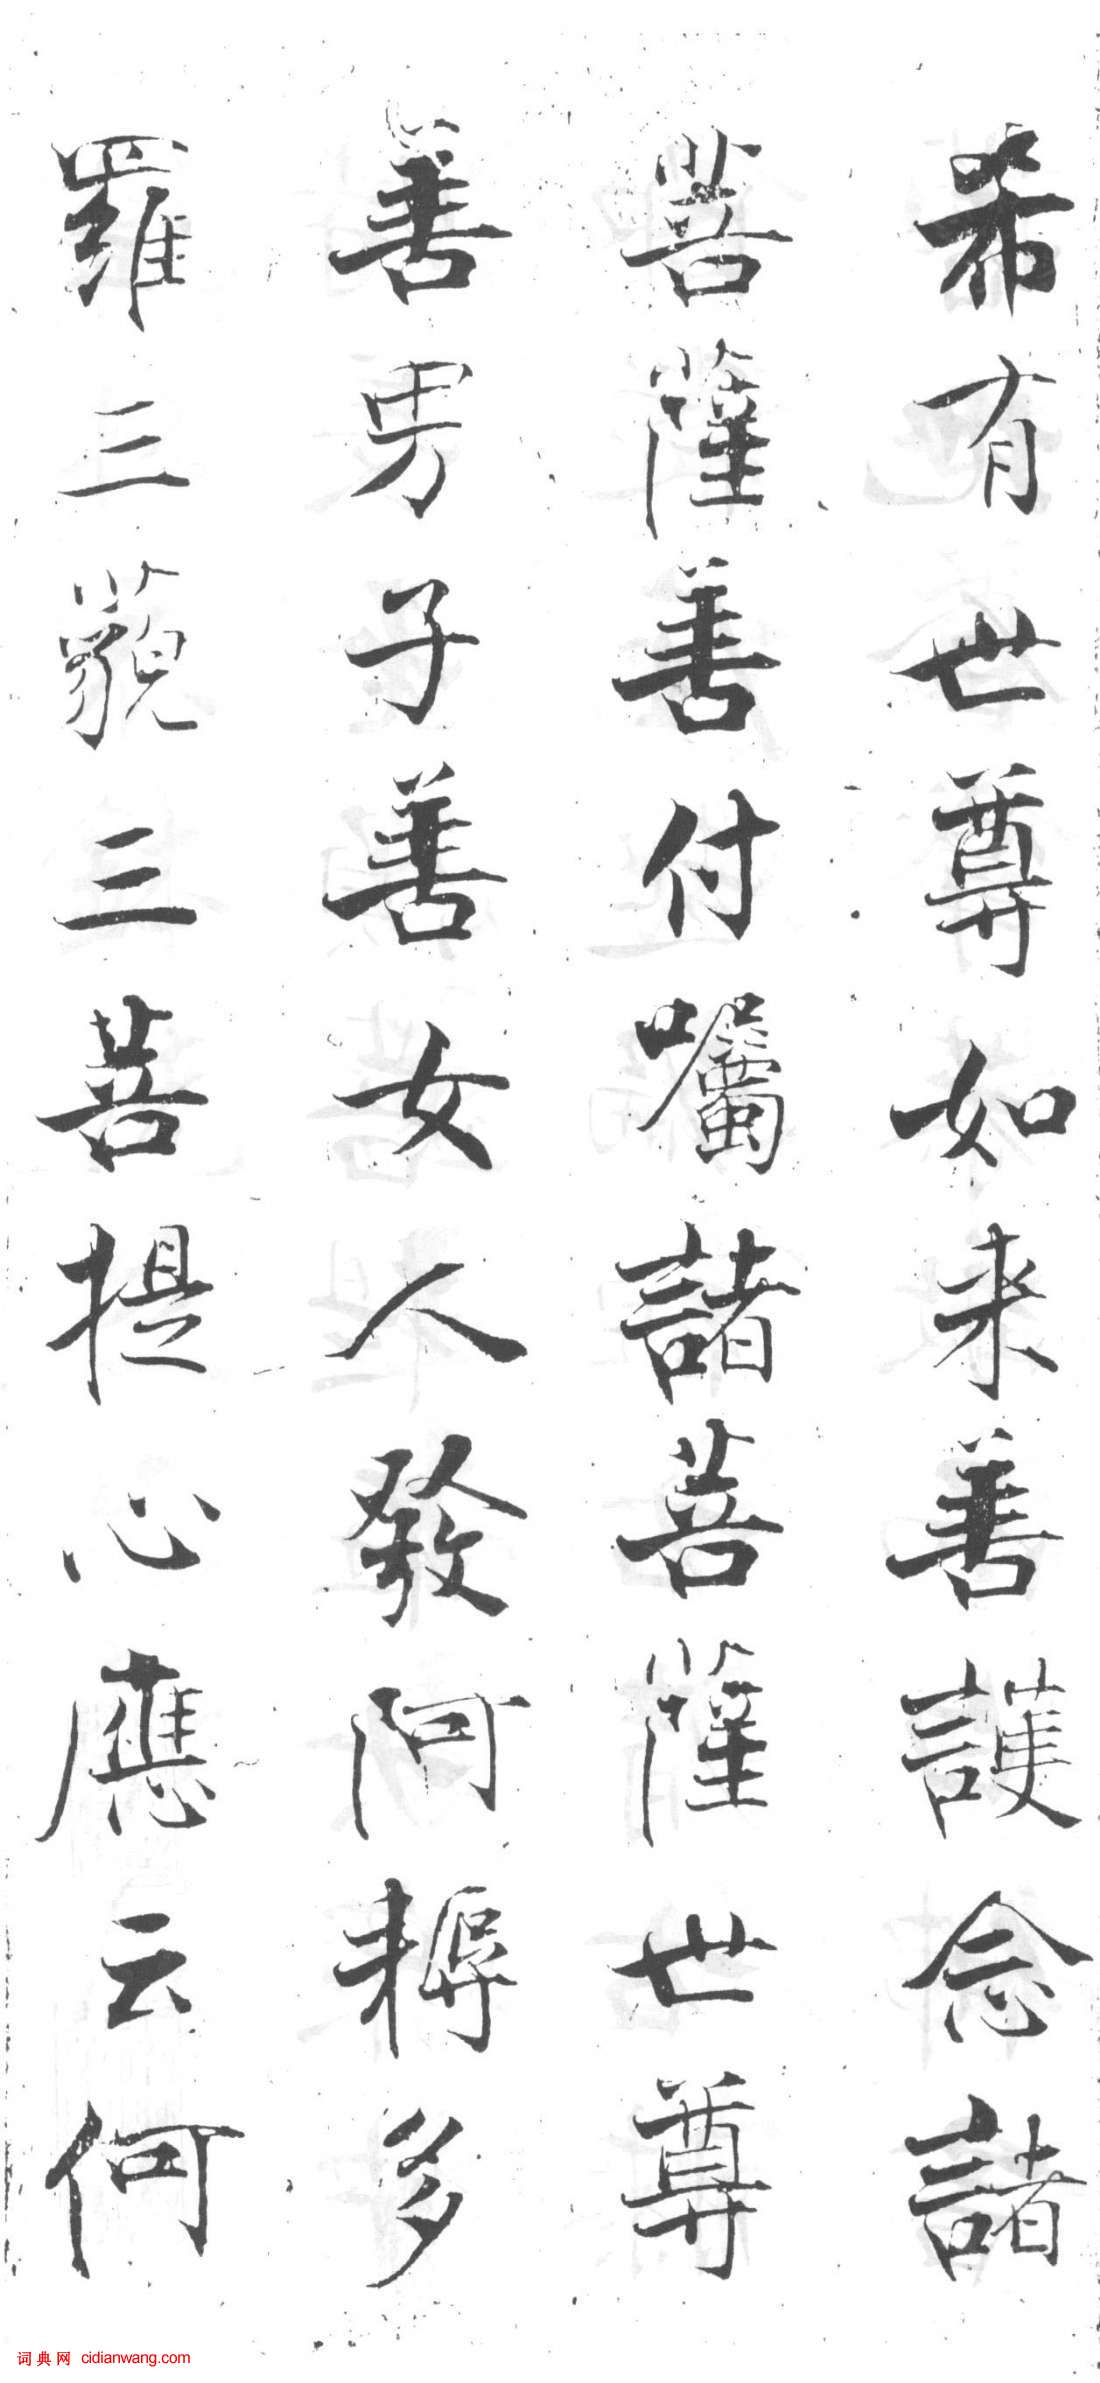 希有世尊如来善護念諸
菩薩善付囑諸菩薩世尊
善男子善女人發阿耨多
羅三藐三菩提心應云何
词典网 cidianwang.com